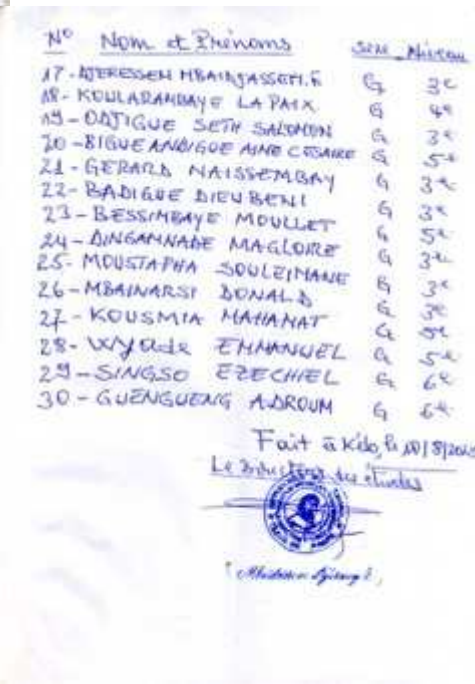 N° Nom et Prénoms Sexe Niveau
17- DJERESSEM MBAIDJASSEM.F G 3e
18- KOULARAMBAYE LA PAIX G 4e
19- ODJIGUE SETH SALOMON G 3e
20- BIGUE ANDIGUE AIME CESAIRE G 5e
21- GERARD NAISSEMBAY G 3e
22- BADIGUE DIEUBENI G 3e
23- BESSIMBAYE MOULLET G 5e
24- DINGAMNADE MAGLOIRE G 3e
25- MOUSTAPHA SOULEIMANE G 3e
26- MBAINARSI DONALD G 3e
27- KOUSMIA MAHAMAT G 5e
28- Wyade EMMANUEL G 5e
29- SINGSO EZECHIEL G 6e
30- GUENGUENG ADROUM G 6e
Fait à Kélo, le 10/8/202
Le Directeur des études